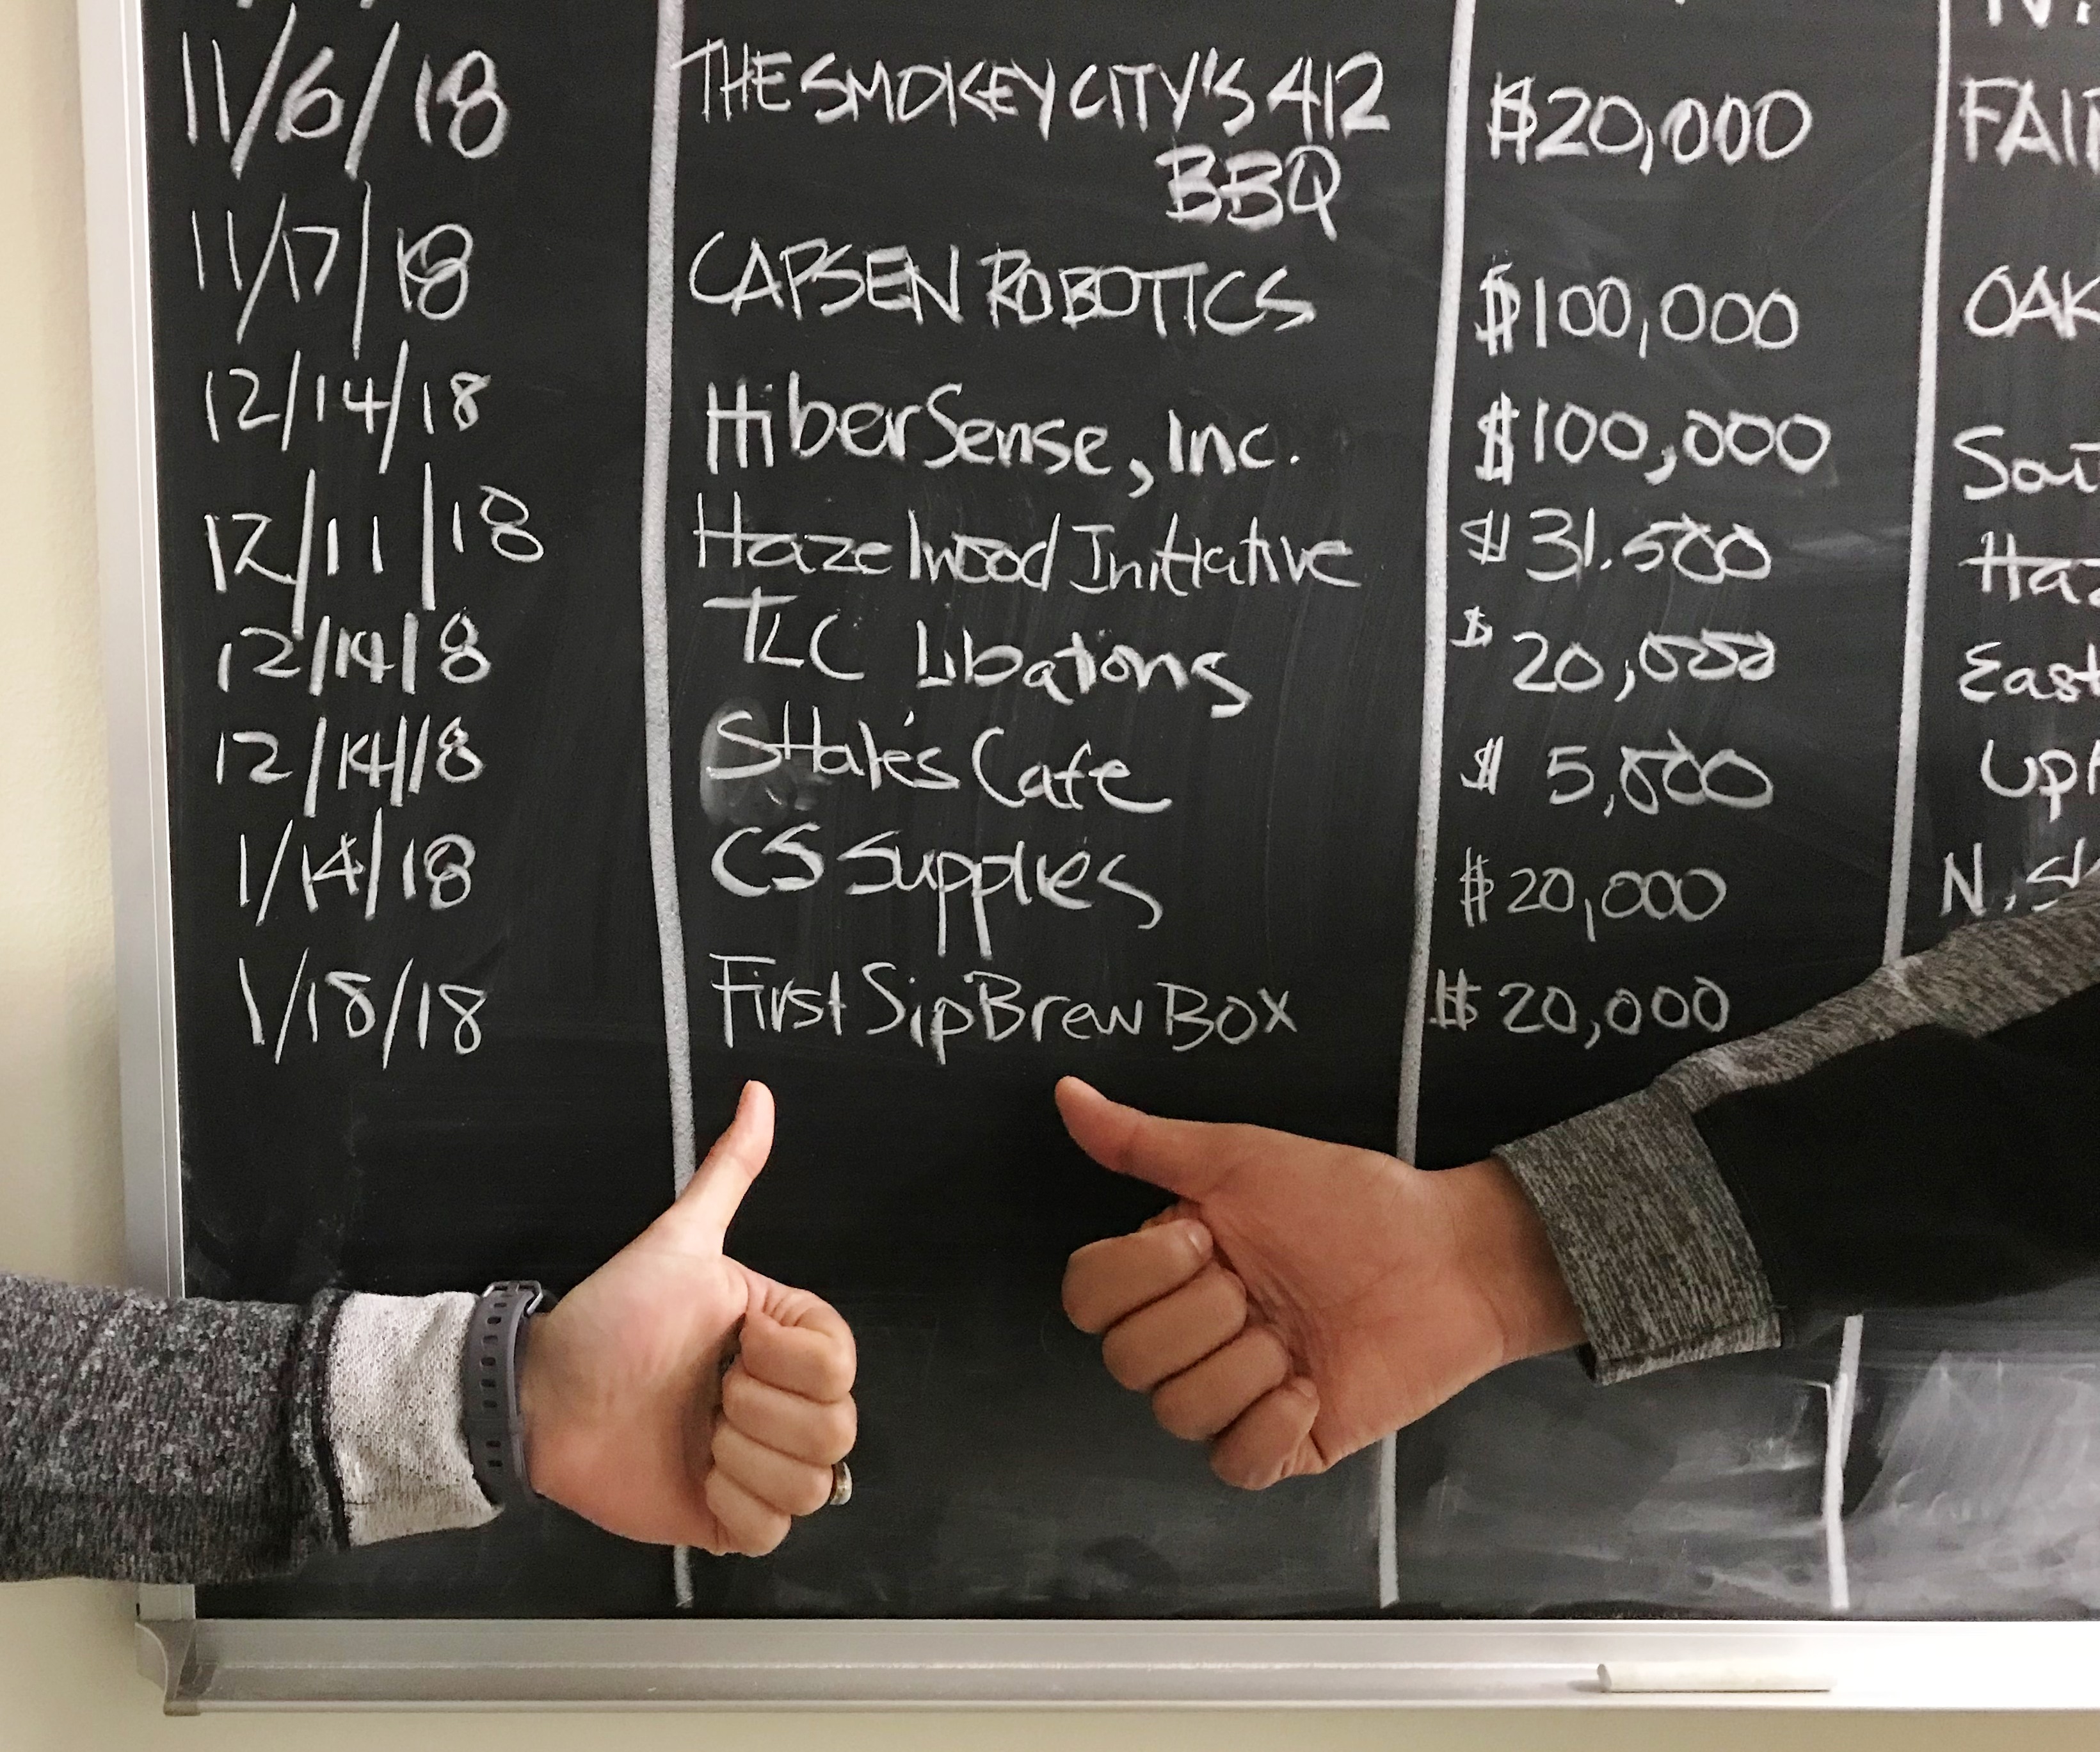 11/6/18 THE SMOKEY CITY'S 412 $20,000 FAI
BBQ
11/17/18 CAPSEN ROBOTICS $100,000 OAK
12/14/18 HiberSense, Inc. $100,000 Sout
12/11/18 Hazelwood Initiative $31.500 Haz
12/14/18 TLC Libations $20,000 East
12/14/18 SHale's Cafe $5,000 Upt
1/14/18 CS Supplies $20,000 N.S
1/18/18 First Sip Brew Box $20,000